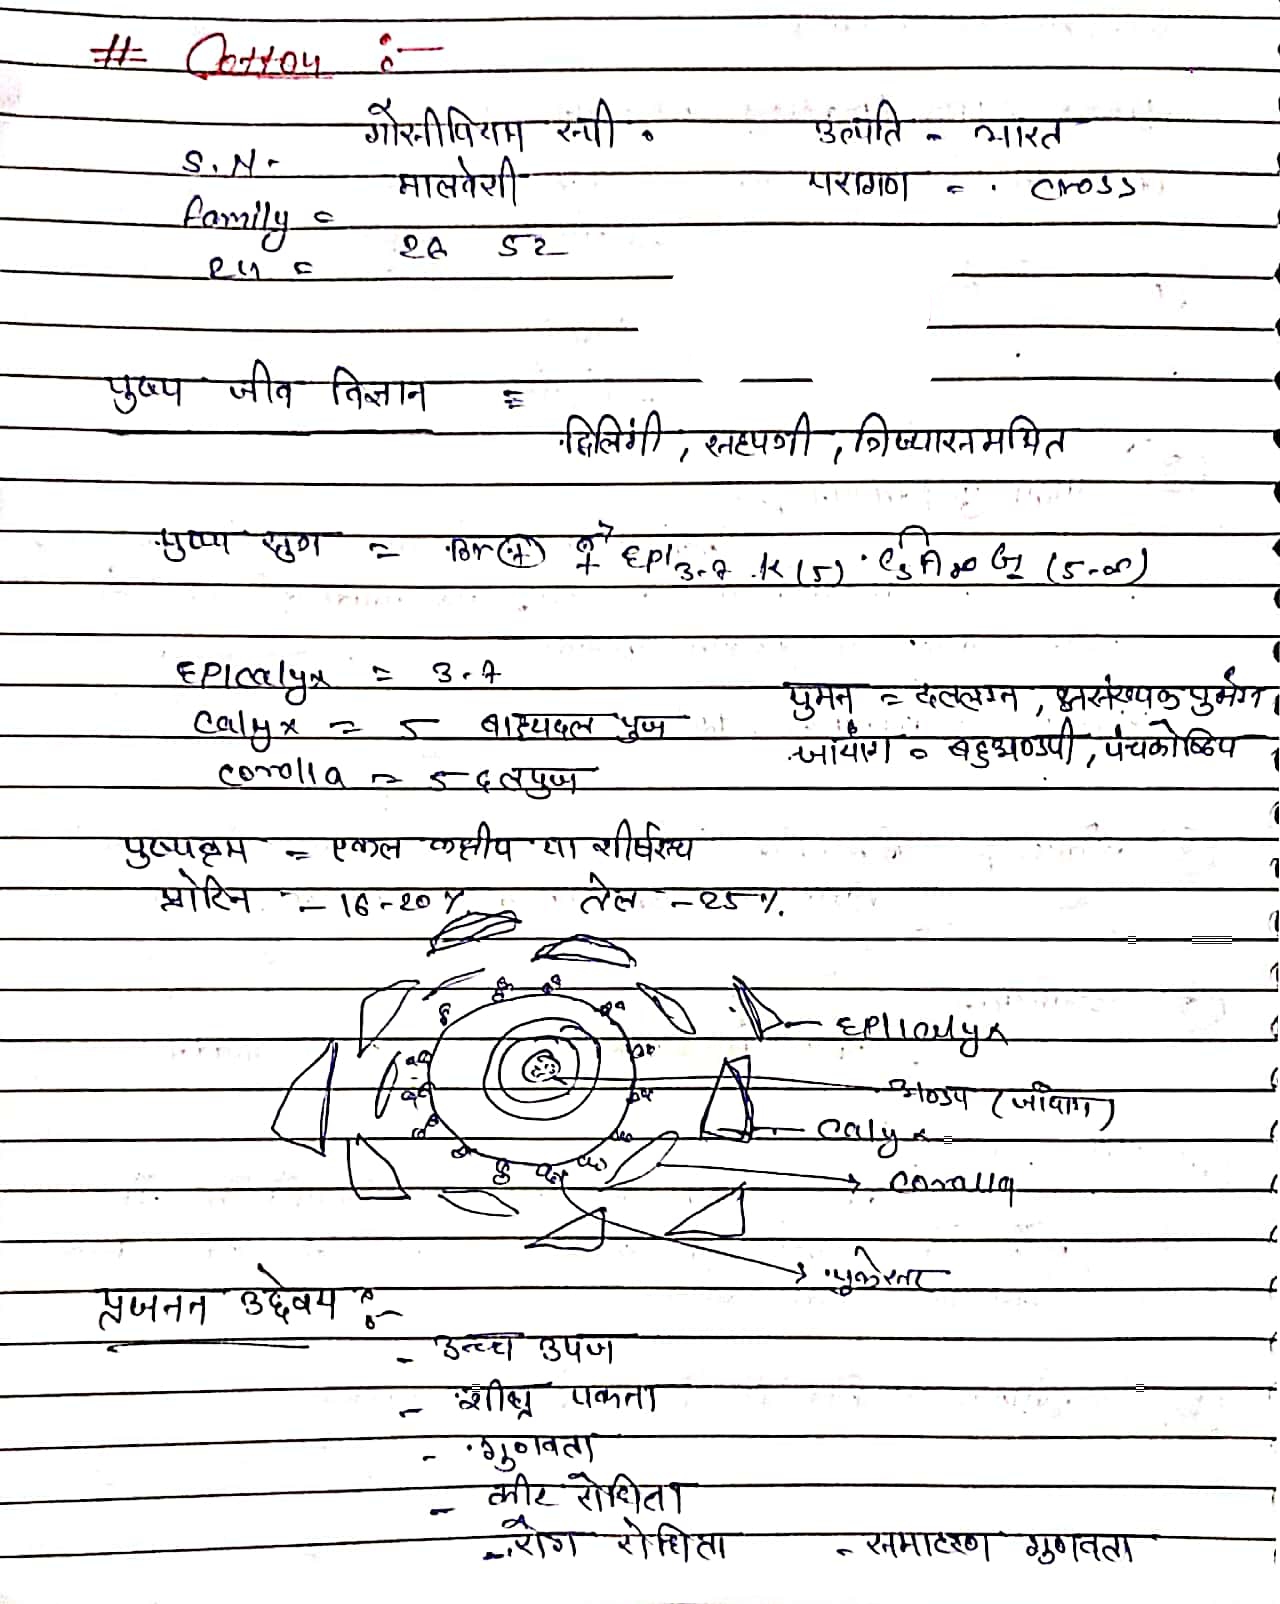 # Cotton :-
गौसीपियम स्पी. उत्पति - भारत
S.N-
मालवेसी परागण = cross
family =
2n = 26 52
पुष्प जीव विज्ञान =
द्विलिंगी, सहपत्री, त्रिज्यासममित
पुष्प सुत्र = Br ⊕ ⚥ EPI 3-7 K(5) C5 A∞ G (5-∞)
EPIcalyx = 3-7
पुमंग = दललग्न, असंख्यक पुमंग
calyx = 5 बाह्यदल पुज
जायांग = बहुअण्डपी, पंचकोष्ठिय
corolla = 5 दलपुज
पुष्पक्रम = एकल कक्षीय या शीर्षस्थ
प्रोटिन - 16-20% तेल - 25%.
EPICalyx
अण्डप (जायांग)
Calyx
Corolla
पुकेसर
प्रजनन उद्देश्य :-
- उच्च उपज
- शीघ्र पकता
- गुणवता
- कीट रोधिता
- रोग रोधिता - समाटरण गुणवता